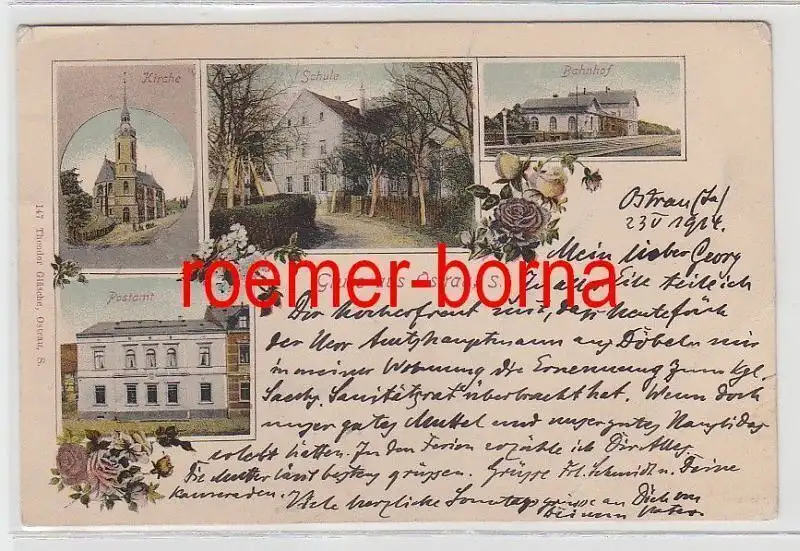 Kirche
Schule
Bahnhof
Ostrau (Sa)
23 V 1914.
Mein lieber Georg
In aller Eile teile ich
roemer-borna
Gruss aus Ostrau, S.
Dir hocherfreut mit, dass heute früh
der Herr Amtshauptmann aus Döbeln mir
in meiner Wohnung die Ernennung zum Kgl.
Sächs. Sanitätsrat überbracht hat. Wenn doch
unser gutes Muttel und unser gutes das
erlebt hätten. In den Ferien erzähle ich Dir Alles.
Die Mutter lässt bestens grüssen. Grüsse Frl. Schmidt u. Deine
Kameraden.
Viele herzliche Sonntagsgrüsse an Dich von
Deinem Vater
Postamt
147 Theodor Gläsche, Ostrau, S.